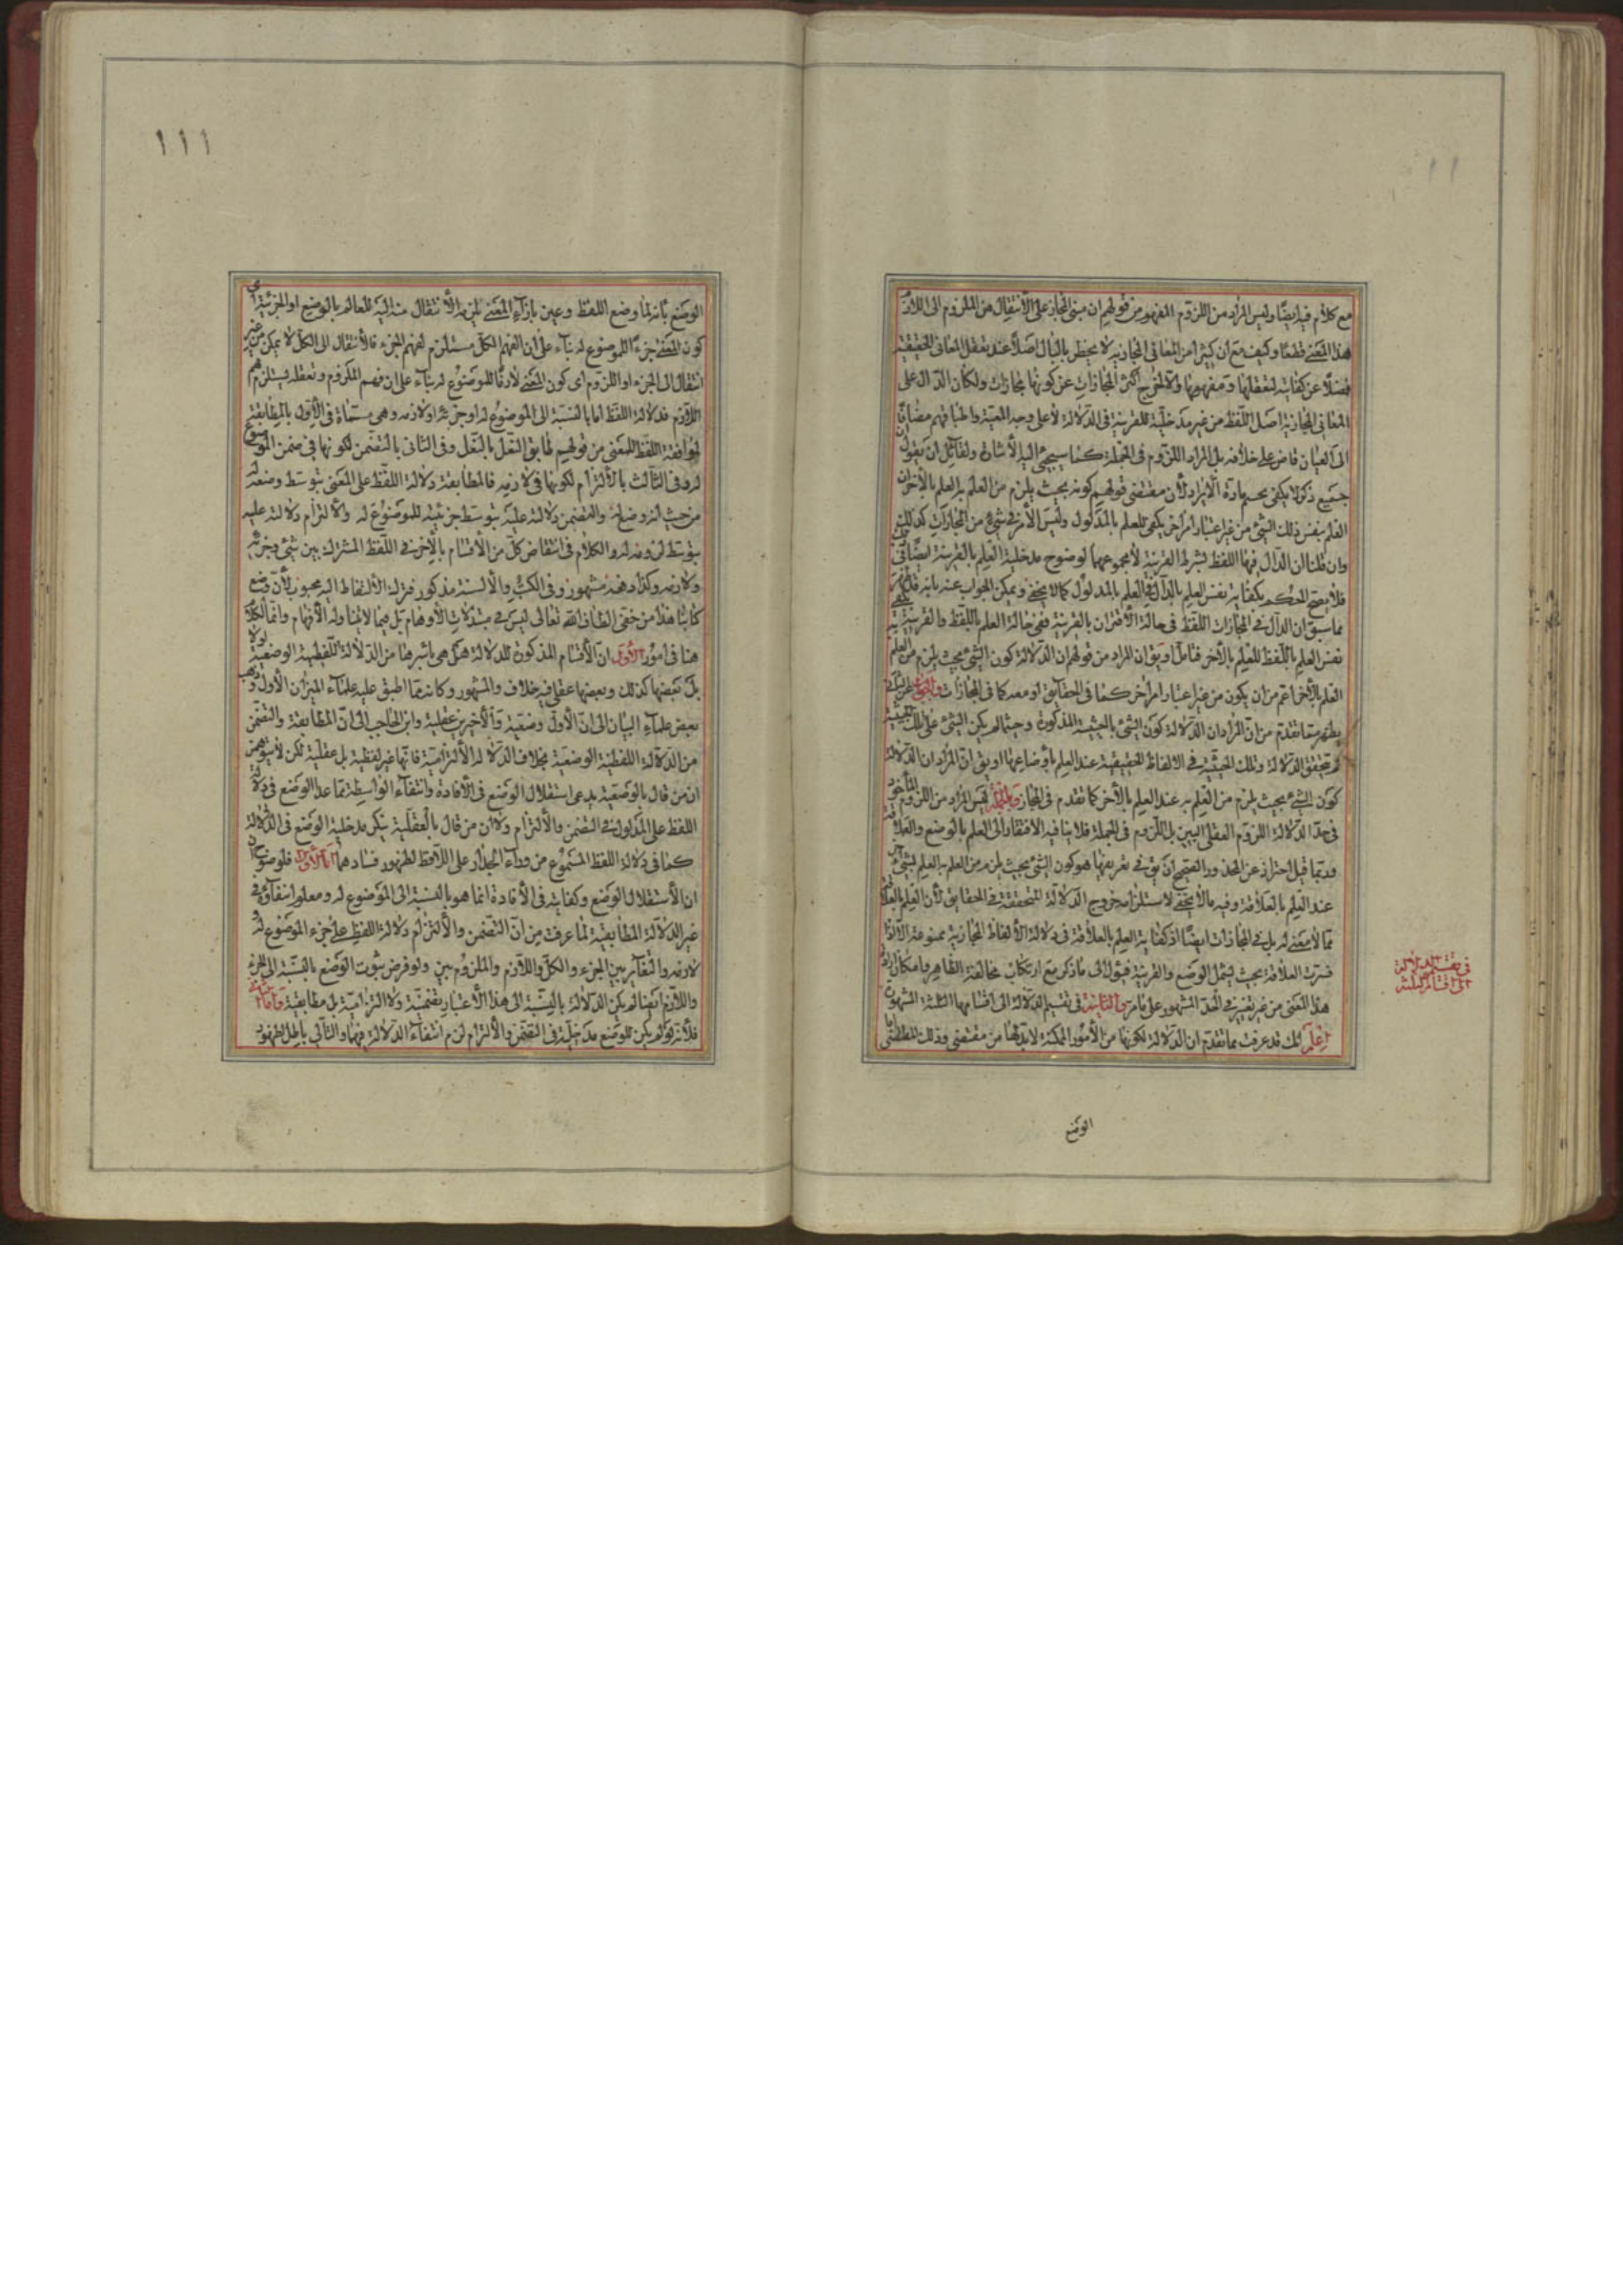 مع كلام فيه ايضا وليس المراد من اللزوم المفهوم من قولهم ان مبنى المجاز على الانتقال من الملزوم الى اللازم
هذا المعنى قطعا وكيف مع ان كثيرا من المعانى المجازية لا يخطر بالبال اصلا عند تعقل المعانى الحقيقية
فضلا عن كفايته لتعقلها ومفهومها والا لخرج اكثر المجازات عن كونها مجازات ولكان الدال على
المعانى المجازية اصل اللفظ من غير مدخلية للقرينة فى الدلالة لا على وجه المعية
الى العيان قاض على خلافه بل المراد اللزوم فى الجملة كما سيجئ اليه الاشارة ولقائل ان يقول
جميع ذكر لا يكفى بحسم مادة الايراد لأن مقتضى قولهم كونه بحيث يلزم من العلم به العلم بالاخر ان
العلم بنفس ذلك الشئ من غير اعتبار امر اخر يكفى للعلم بالمدلول وليس الامر فى شئ من المجازات كذلك
وان قلنا ان الدال فيها اللفظ بشرط القرينة لا مجموعهما لوضوح مدخلية العلم بالقرينة ايضا فى
فلا يصح الحكم بكفاية نفس العلم بالدال فى العلم بالمدلول كما لا يخفى ويمكن الجواب عنه بانه
مما سبق ان الدال فى المجازات اللفظ فى حالة الاقتران بالقرينة ففى حالة العلم باللفظ والقرينة
نفس العلم باللفظ للعلم بالاخر فتامل او يق ان المراد من قولهم ان الدلالة كون الشئ بحيث يلزم من العلم
العلم بالاخر اعم من ان يكون من غير اعتبار امر اخر كما فى الحقايق او معه كما فى المجازات
يظهر مما تقدم من ان المراد ان الدلالة كون الشئ بالحيثية المذكورة وحيثما لم يكن الشئ على تلك الحيثية
لم تتحقق الدلالة وتلك الحيثية فى الالفاظ الحقيقية عند العلم بأوضاعها او يق ان المراد ان الدلالة
كون الشئ بحيث يلزم من العلم به عند العلم بالاخر كما تقدم فى المجاز وبالجملة ليس المراد من اللزوم المأخوذ
فى حد الدلالة اللزوم العقلى البين بل اللزوم فى الجملة فلا ينافيه الافتقار الى العلم بالوضع والعلاقة
وربما قيل احترازا عن المحذور والصحيح ان يق فى تعريفها هو كون الشئ بحيث يلزم من العلم به العلم بشئ
عند العلم بالعلاقة وفيه ما لا يخفى لاستلزامه خروج الدلالة المتحققة فى الحقايق لأن العلم بالعلاقة
مما لا معنى له بل فى المجازات ايضا اذ كفاية العلم بالعلاقة فى دلالة الألفاظ المجازية ممنوعة الا اذا
فسرت العلاقة بحيث يشمل الوضع والقرينة فيؤل الى ما ذكر مع ارتكاب مخالفة الظاهر وامكان ارادة
هذا المعنى من غير تغيير فى الحد المشهور على ما مر والثانية فى تقسيم الدلالة الى اقسامها الثلثة المشهورة
اعلم انك قد عرفت مما تقدم ان الدلالة لكونها من الأمور الممكنة لا بد لها من مقتضى وذلك المقتضى
فى تقسيم الدلالة
الى اقسام الثلثة
الوضع
١١١
الوضع بانه لما وضع اللفظ وعين بازاء المعنى يلزمه الانتقال منه اليه للعالم بالوضع او الجزئية اى
كون المعنى جزءا للموضوع له بناء على ان الفهم الكل مستلزم لفهم الجزء فالانتقال الى الكل لا يمكن من غير
انتقال الى الجزء او اللزوم اى كون المعنى لازما للموضوع له بناء على ان فهم الملزوم وتعقله يستلزم فهم
اللازم فدلالة اللفظ اما بالنسبة الى الموضوع له او جزئه او لازمه وهى مسماة فى الاول بالمطابقة
لموافقة اللفظ للمعنى من قولهم طابق النعل بالنعل وفى الثانى بالتضمن لكونها فى ضمن الموضوع
له وفى الثالث بالالتزام لكونها فى لازمه فالمطابقة دلالة اللفظ على المعنى بتوسط وضعه له
من حيث انه وضع له والتضمن دلالته عليه بتوسط جزئيته للموضوع له والالتزام دلالته عليه
بتوسط لزومه له والكلام فى انتقاض كل من الاقسام بالاخر فى اللفظ المشترك بين شئ وجزئه
ولازمه وكذا دفعه مشهور وفى الكتب والالسنة مذكور فترك الالتفاط اليه محبور لأن وضع
كتابنا هذا من خفى الطاف الله تعالى ليس فى مبتذلات الاوهام بل فيما لا يتناوله الأفهام وانما الكلام
هنا فى امور الاول ان الاقسام المذكورة للدلالة هل هى باسرها من الدلالة اللفظية الوضعية اولا
بل بعضها كذلك وبعضها عقلى فيه خلاف والمشهور وكانه مما اطبق عليه علماء الميزان الأول وذهب
بعض علماء البيان الى ان الاول وضعية والاخيرين عقلية وابن الحاجب الى ان المطابقة والتضمن
من الدلالة اللفظية الوضعية بخلاف الدلالة الالتزامية فانها غير لفظية بل عقلية لكن لا يتوهمن
ان من قال بالوضعية يدعى استقلال الوضع فى الافادة وانتفاء الواسطة مما عدا الوضع فى دلالة
اللفظ على المدلول فى التضمن والالتزام ولا ان من قال بالعقلية ينكر مدخلية الوضع فى الدلالة
كما فى دلالة اللفظ المسموع من وراء الجدار على اللافظ لظهور فسادهما اما الاول فلوضوح
ان الاستقلال الوضع وكفايته فى الأفادة انما هو بالنسبة الى الموضوع له ومعلوم انتفاؤه فى
غير الدلالة المطابقية لما عرفت من ان التضمن والالتزام دلالة اللفظ على جزء الموضوع له او
لازمه والتغاير بين الجزء والكل واللازم والملزوم بين ولو فرض ثبوت الوضع بالنسبة الى الجزء
واللازم ايضا لم يكن الدلالة بالنسبة الى هذا الاعتبار تضمنية ولا التزامية بل مطابقية واما الثانى
فلأنه لو لم يكن للوضع مدخلية فى التضمن والالتزام لزم انتفاء الدلالة فيهما والتالى باطل لظهور